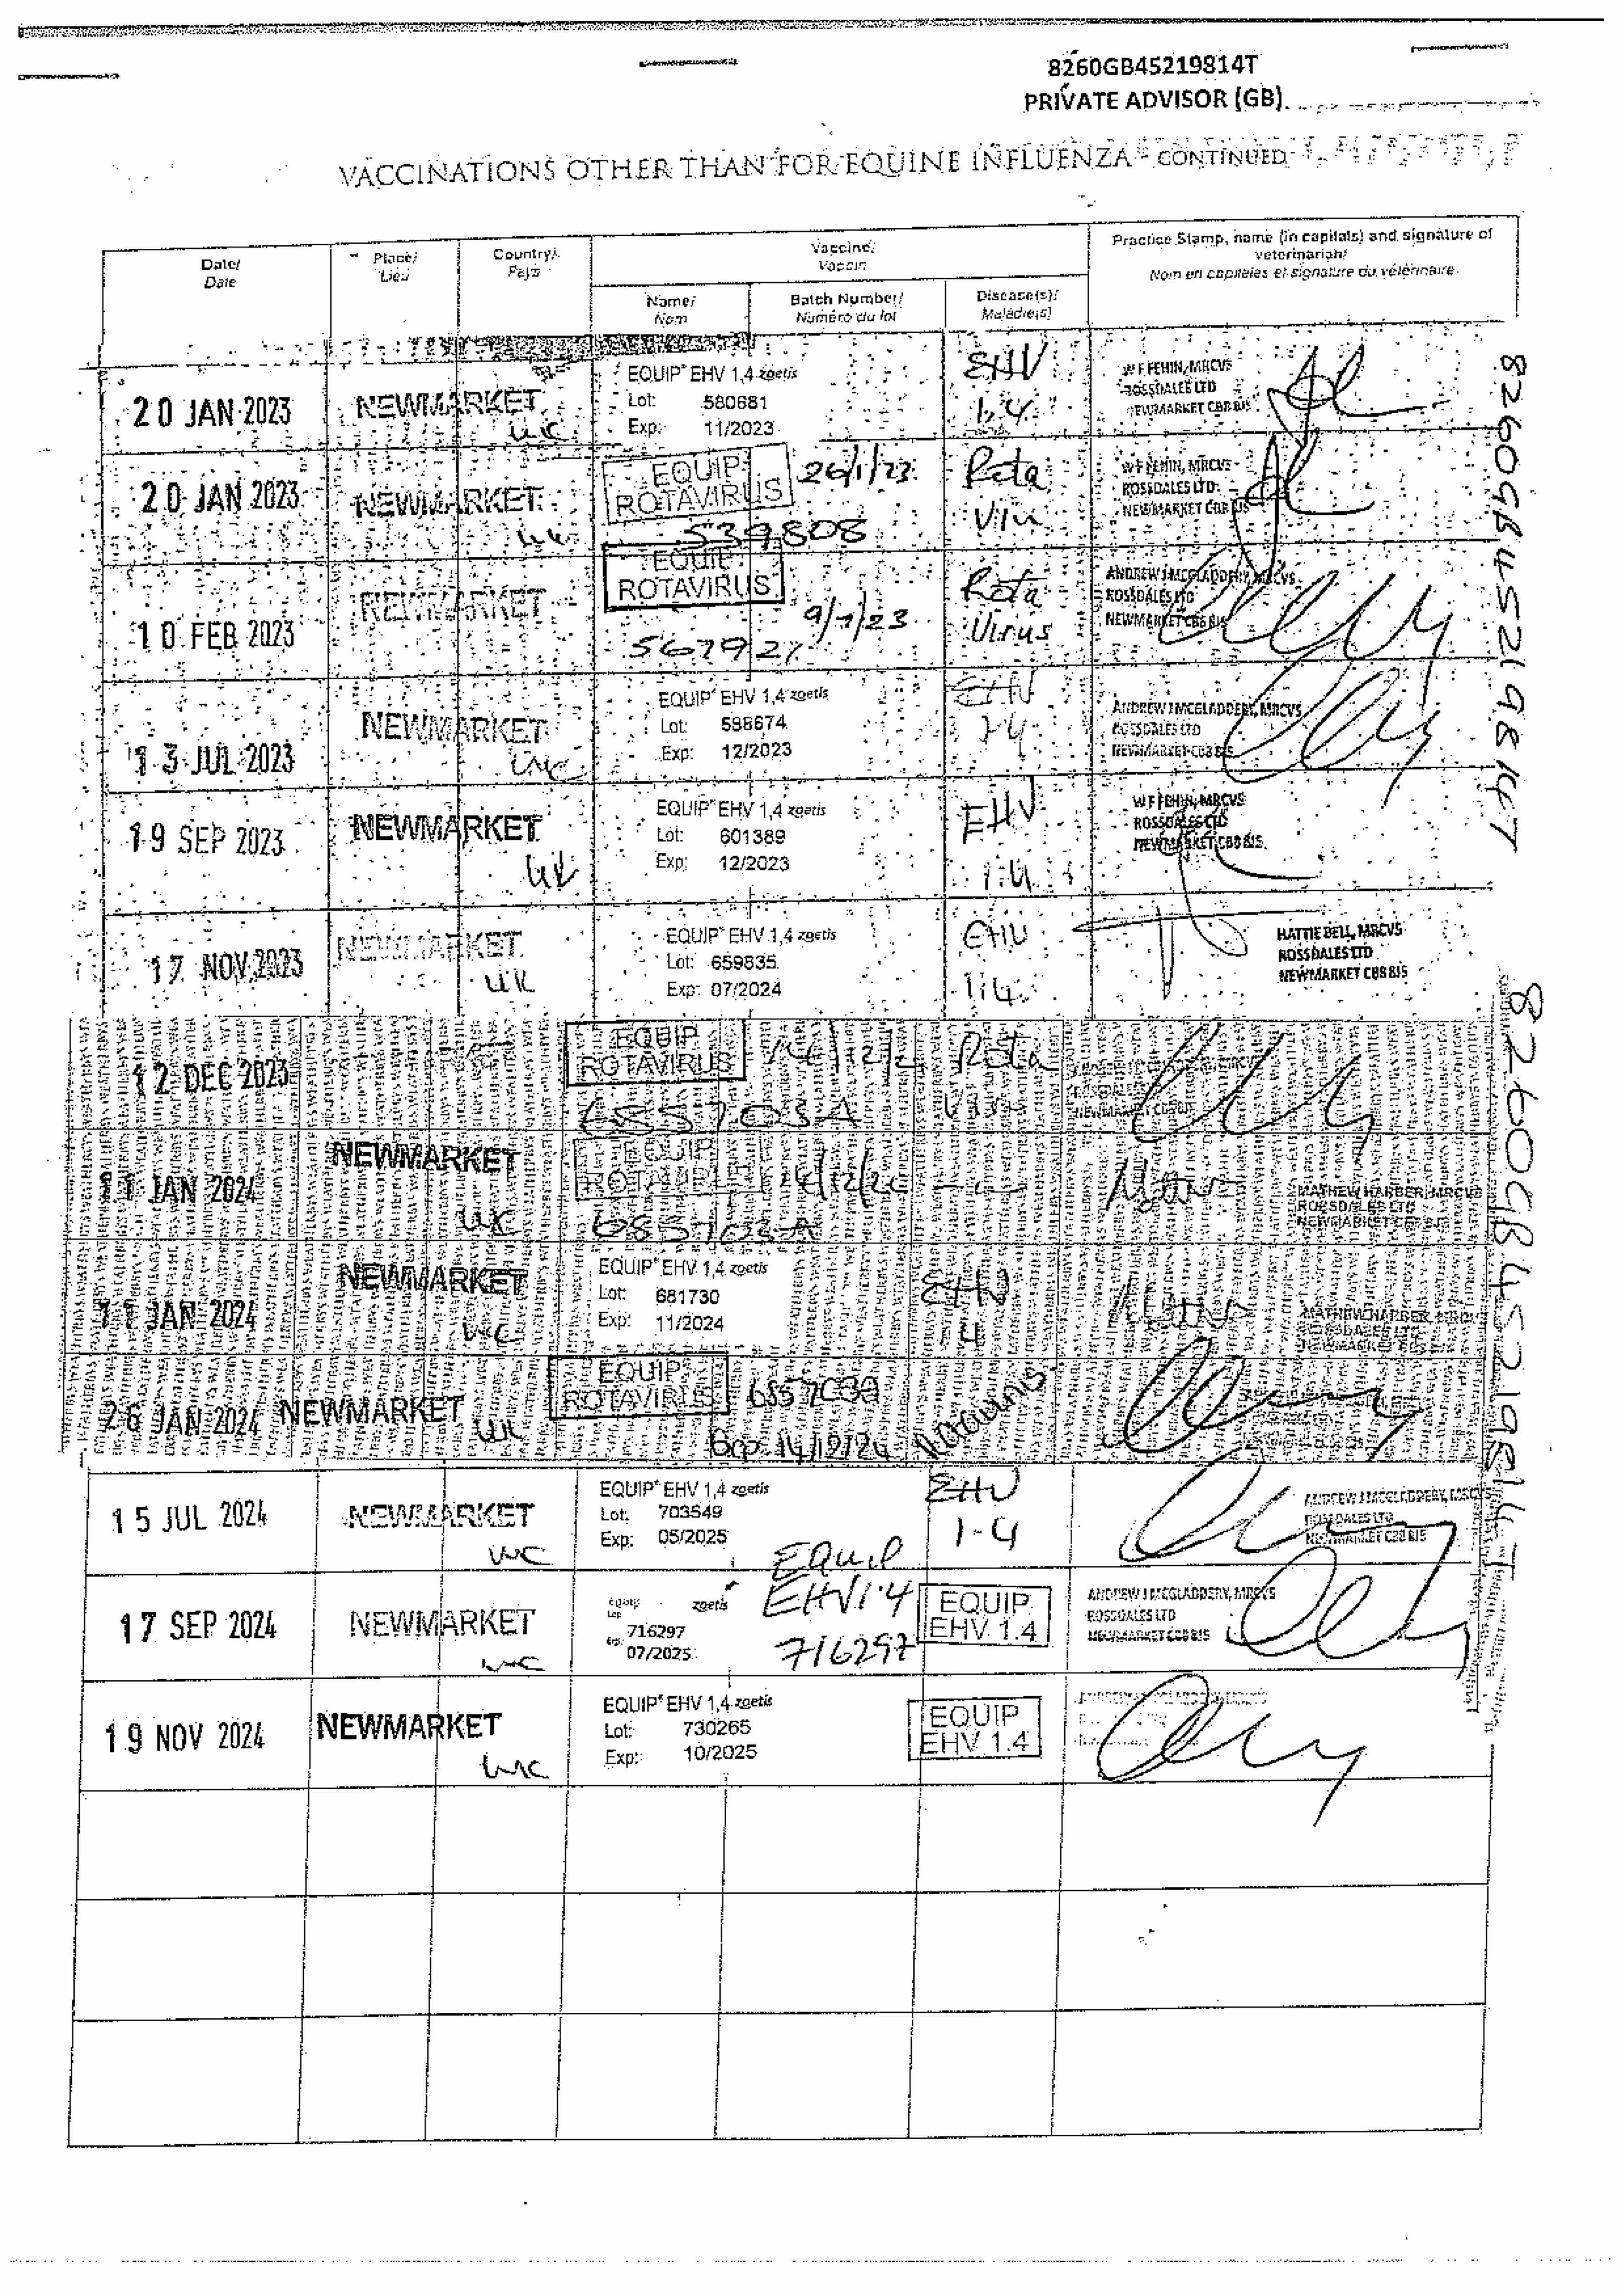 8260GB45219814T
PRIVATE ADVISOR (GB)
VACCINATIONS OTHER THAN FOR EQUINE INFLUENZA - CONTINUED
Date/
Date
Place/
Lieu
Country/
Pays
Vaccine/
Vaccin
Practice Stamp, name (in capitals) and signature of
veterinarian/
Nom en capitales et signature du vétérinaire
Name/
Nom
Batch Number/
Numéro du lot
Disease(s)/
Maladie(s)
20 JAN 2023 NEWMARKET UK
EQUIP EHV 1,4 zoetis
Lot: 580681
Exp: 11/2023
EHV
1.4
W F FEHIN, MRCVS
ROSSDALES LTD
NEWMARKET CB8 8JS
20 JAN 2023 NEWMARKET UK
EQUIP
ROTAVIRUS
26/1/23
539808
Rota
W F FEHIN, MRCVS
ROSSDALES LTD
NEWMARKET CB8 8JS
10 FEB 2023 NEWMARKET
EQUIP
ROTAVIRUS
9/7/23
Rota
Virus
ANDREW J MCGLADDERY, MRCVS
ROSSDALES LTD
NEWMARKET CB8 8JS
13 JUL 2023 NEWMARKET UK
EQUIP EHV 1,4 zoetis
Lot: 588674
Exp: 12/2023
EHV
1-4
ANDREW J MCGLADDERY, MRCVS
ROSSDALES LTD
NEWMARKET CB8 8JS
19 SEP 2023 NEWMARKET UK
EQUIP EHV 1,4 zoetis
Lot: 601389
Exp: 12/2023
EHV
1.4
W F FEHIN, MRCVS
ROSSDALES LTD
NEWMARKET CB8 8JS
17 NOV 2023 NEWMARKET UK
EQUIP EHV 1,4 zoetis
Lot: 659835
Exp: 07/2024
EHV
1.4
HATTIE BELL, MRCVS
ROSSDALES LTD
NEWMARKET CB8 8JS
12 DEC 2023
EQUIP
ROTAVIRUS
685703A
Rota
Virus
11 JAN 2024 NEWMARKET UK
EQUIP
ROTAVIRUS
685703A
MATHEW HARBER, MRCVS
ROSSDALES LTD
NEWMARKET CB8 8JS
11 JAN 2024 NEWMARKET UK
EQUIP EHV 1,4 zoetis
Lot: 681730
Exp: 11/2024
EHV
1.4
MATHEW HARBER, MRCVS
ROSSDALES LTD
NEWMARKET CB8 8JS
26 JAN 2024 NEWMARKET UK
EQUIP
ROTAVIRUS
Exp 14/12/24
15 JUL 2024 NEWMARKET UK
EQUIP EHV 1,4 zoetis
Lot: 703549
Exp: 05/2025
EHV
1-4
ANDREW J MCGLADDERY, MRCVS
ROSSDALES LTD
NEWMARKET CB8 8JS
17 SEP 2024 NEWMARKET UK
Equip zoetis
716297
07/2025
Equip
EHV1.4
716297
EQUIP
EHV 1.4
ANDREW J MCGLADDERY, MRCVS
ROSSDALES LTD
NEWMARKET CB8 8JS
19 NOV 2024 NEWMARKET UK
EQUIP EHV 1,4 zoetis
Lot: 730265
Exp: 10/2025
EQUIP
EHV 1.4
8260GB45219814T
8260GB45219814T